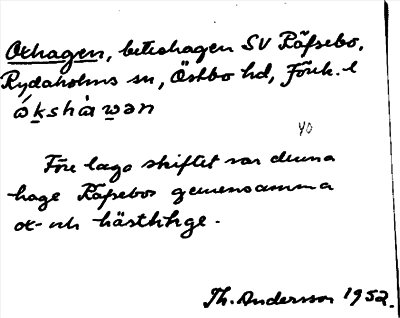 Oxhagen, beteshagen SV Räfsebo,
Rydaholms sn, Östbo hd, Jönk. l
ǿkshàwən
40
Före laga skiftet var denna
hage Räfsebos gemensamma
ox- och hästhage.
Th. Andersson 1952.